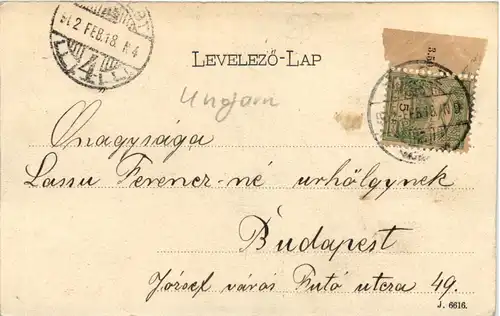 912 FEB.18. N4
LEVELEZŐ-LAP
Ungarn
FEB.18. N
Önagysága
Lassu Ferencz-né urhölgynek
Budapest
József város Futó utcza 49.
J. 6616.